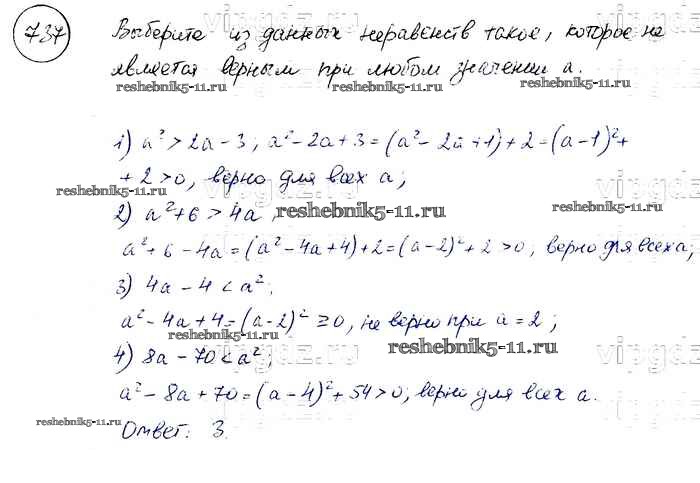 737
Выберите из данных неравенств такое, которое не
является верным при любом значении a.
1) a² > 2a - 3; a² - 2a + 3 = (a² - 2a + 1) + 2 = (a - 1)² +
+ 2 > 0, верно для всех a;
2) a² + 6 > 4a
a² + 6 - 4a = (a² - 4a + 4) + 2 = (a - 2)² + 2 > 0, верно для всех a;
3) 4a - 4 < a²;
a² - 4a + 4 = (a - 2)² ≥ 0, не верно при a = 2;
4) 8a - 70 < a²;
a² - 8a + 70 = (a - 4)² + 54 > 0; верно для всех a.
Ответ: 3.
reshebnik5-11.ru
reshebnik5-11.ru
reshebnik5-11.ru
reshebnik5-11.ru
reshebnik5-11.ru
reshebnik5-11.ru
reshebnik5-11.ru
reshebnik5-11.ru
reshebnik5-11.ru